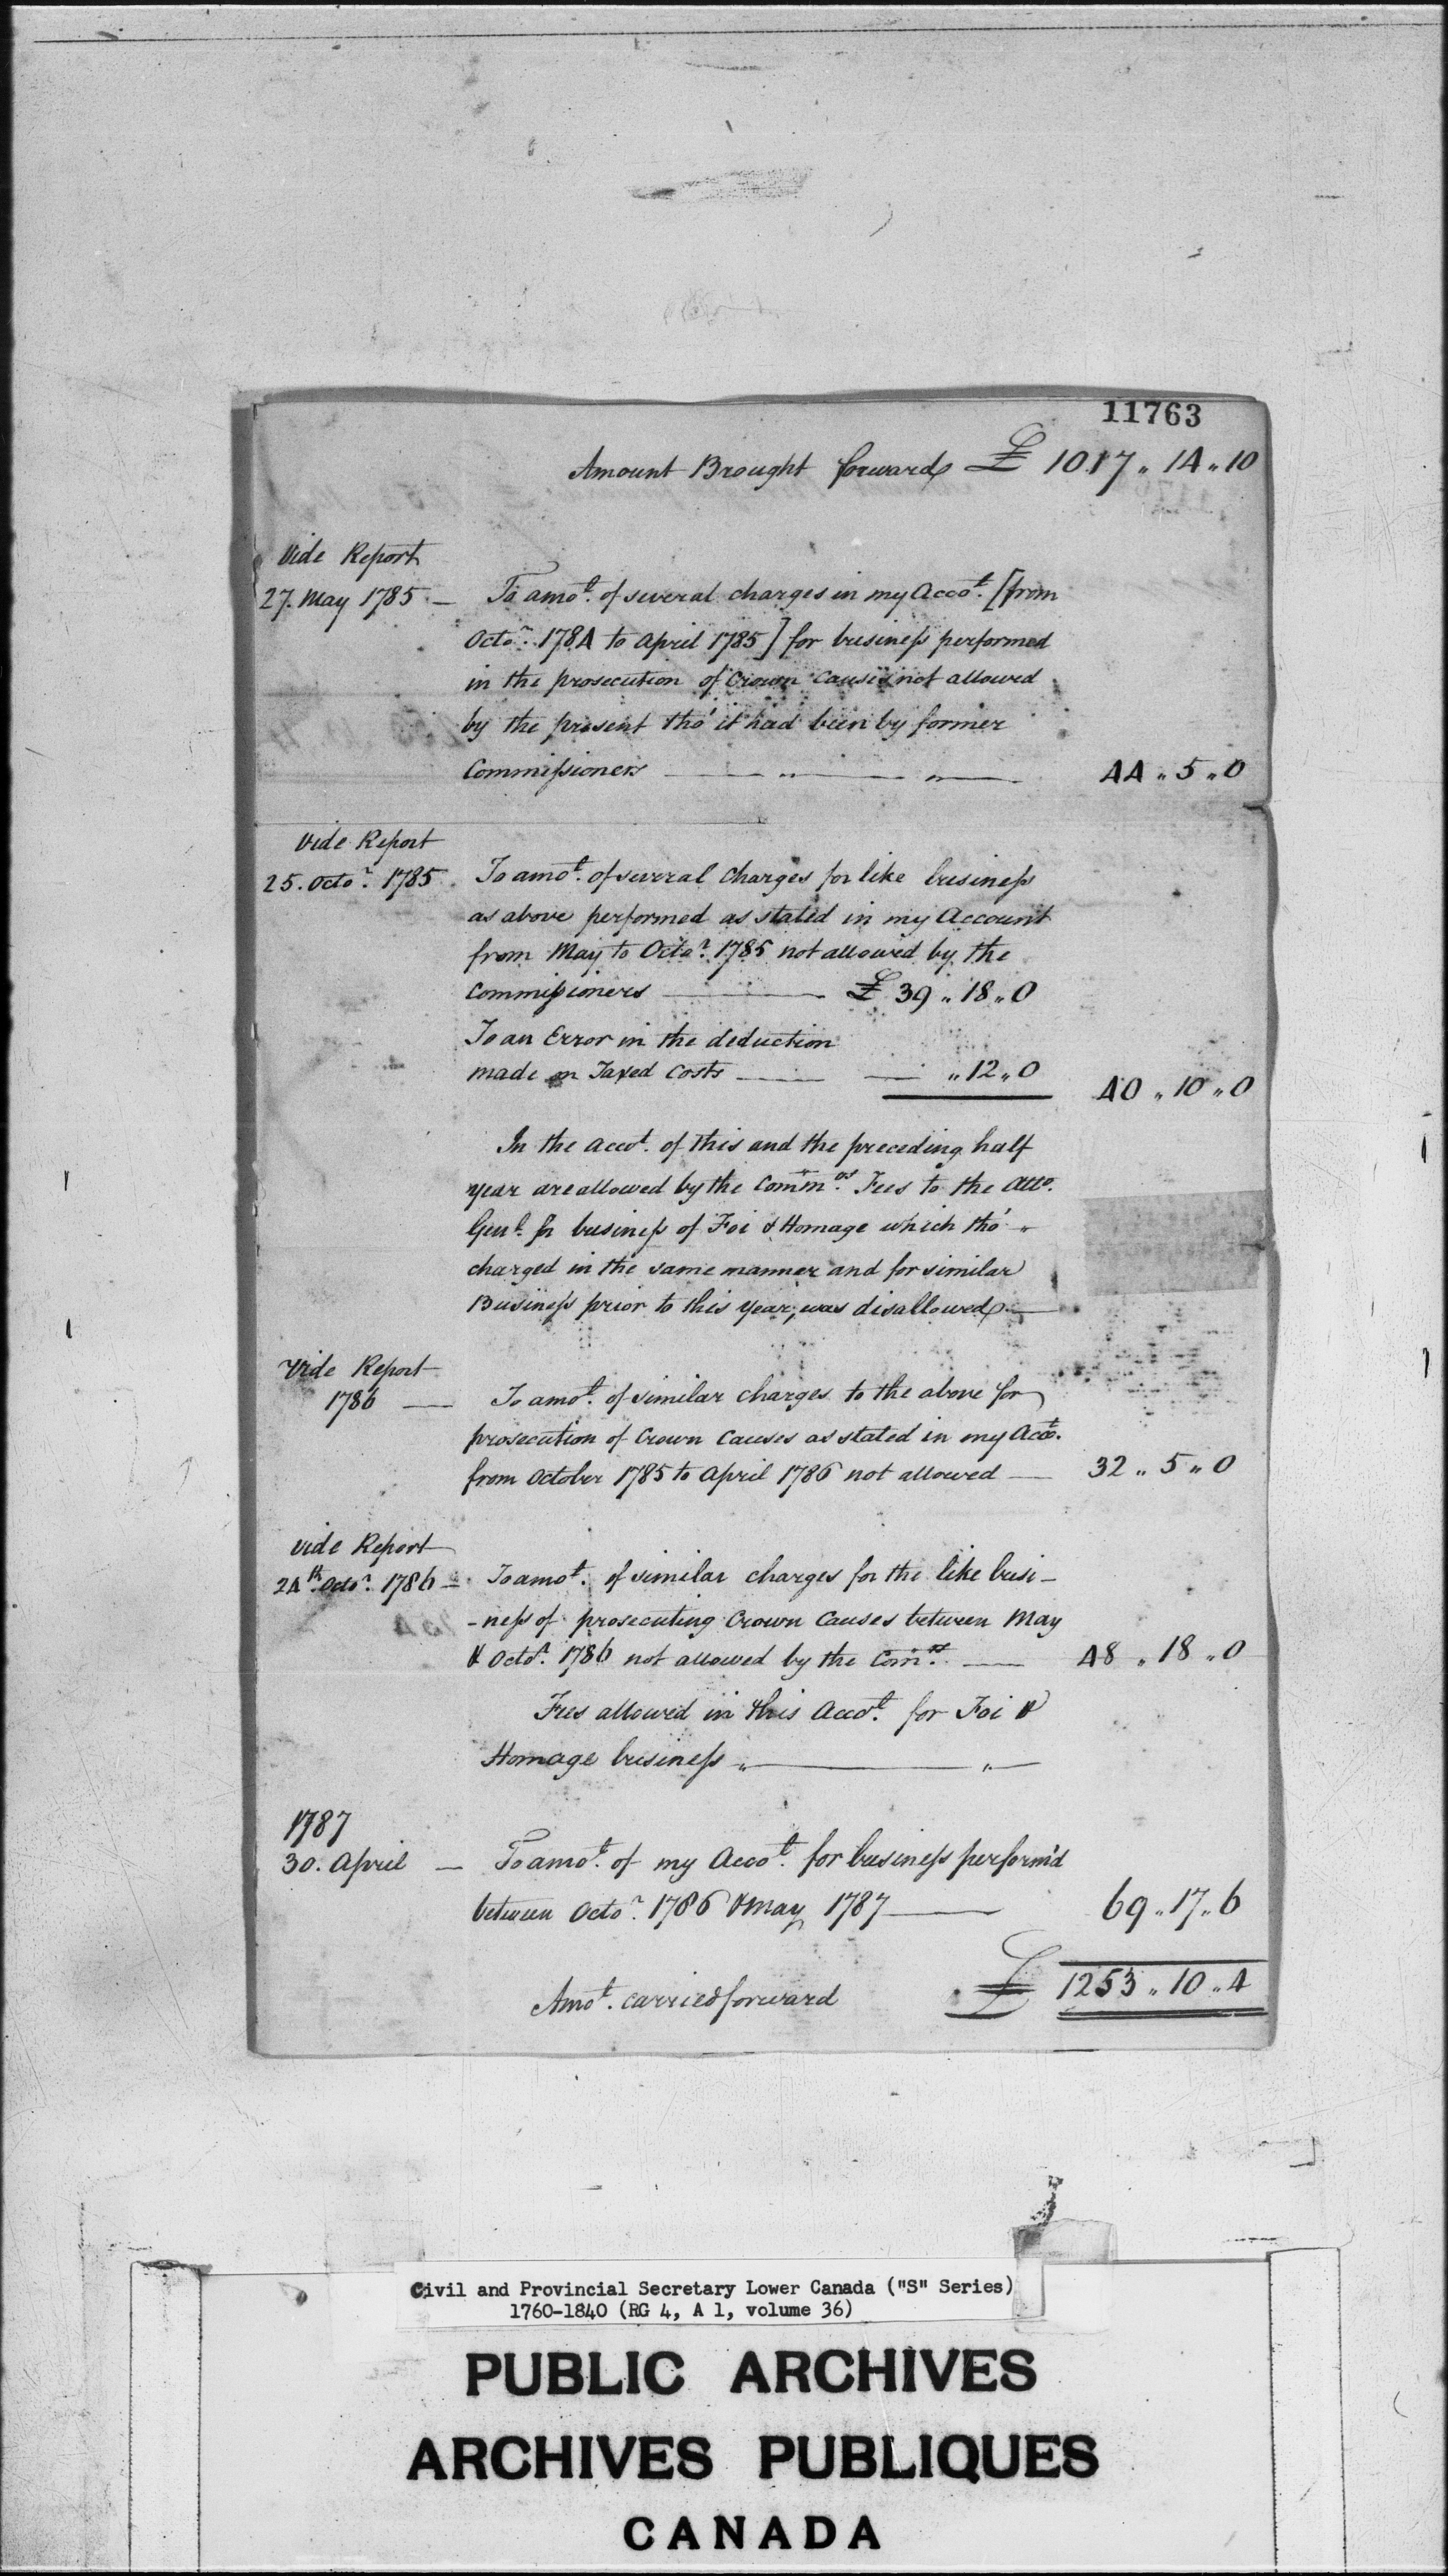 11763
Amount Brought forward £ 1017 " 14 " 10
Vide Report
27. May 1785 — To amot. of several charges in my Accot. [from
Octor. 1784 to April 1785] for business performed
in the prosecution of Crown Causes not allowed
by the present tho' it had been by former
Commissioners — " — " — 44 " 5 " 0
Vide Report
25. Octor. 1785. To amot. of several Charges for like business
as above performed as stated in my Account
from May to Octor. 1785 not allowed by the
Commissioners — £ 39 " 18 " 0
To an Error in the deduction
made on Taxed Costs — — " 12 " 0 40 " 10 " 0
In the accot. of this and the preceding half
year are allowed by the Commrs. Fees to the Atto.
Genl. for business of Foi & Homage which tho' "
charged in the same manner and for similar
Business prior to this year, was disallowed —
Vide Report
1786 — To amot. of similar charges to the above for
prosecution of Crown Causes as stated in my Acct.
from October 1785 to April 1786 not allowed — 32 " 5 " 0
Vide Report
24th. Octor. 1786 — To amot. of similar charges for the like busi-
-ness of prosecuting Crown Causes between May
& Octor. 1786 not allowed by the Comrs. — 48 " 18 " 0
Fees allowed in this Accot. for Foi &
Homage business " — " —
1787
30. April — To amot. of my Accot. for business perform'd
between Octor. 1786 & May 1787 — 69 " 17 " 6
Amot. carried forward £ 1253 " 10 " 4
Civil and Provincial Secretary Lower Canada ("S" Series)
1760-1840 (RG 4, A 1, volume 36)
PUBLIC ARCHIVES
ARCHIVES PUBLIQUES
CANADA